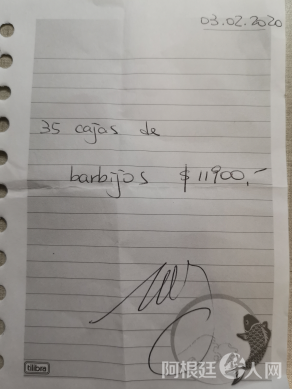 03.02.2020
35 cajas de
barbijos $11900,-
tilibra
阿根廷华人网